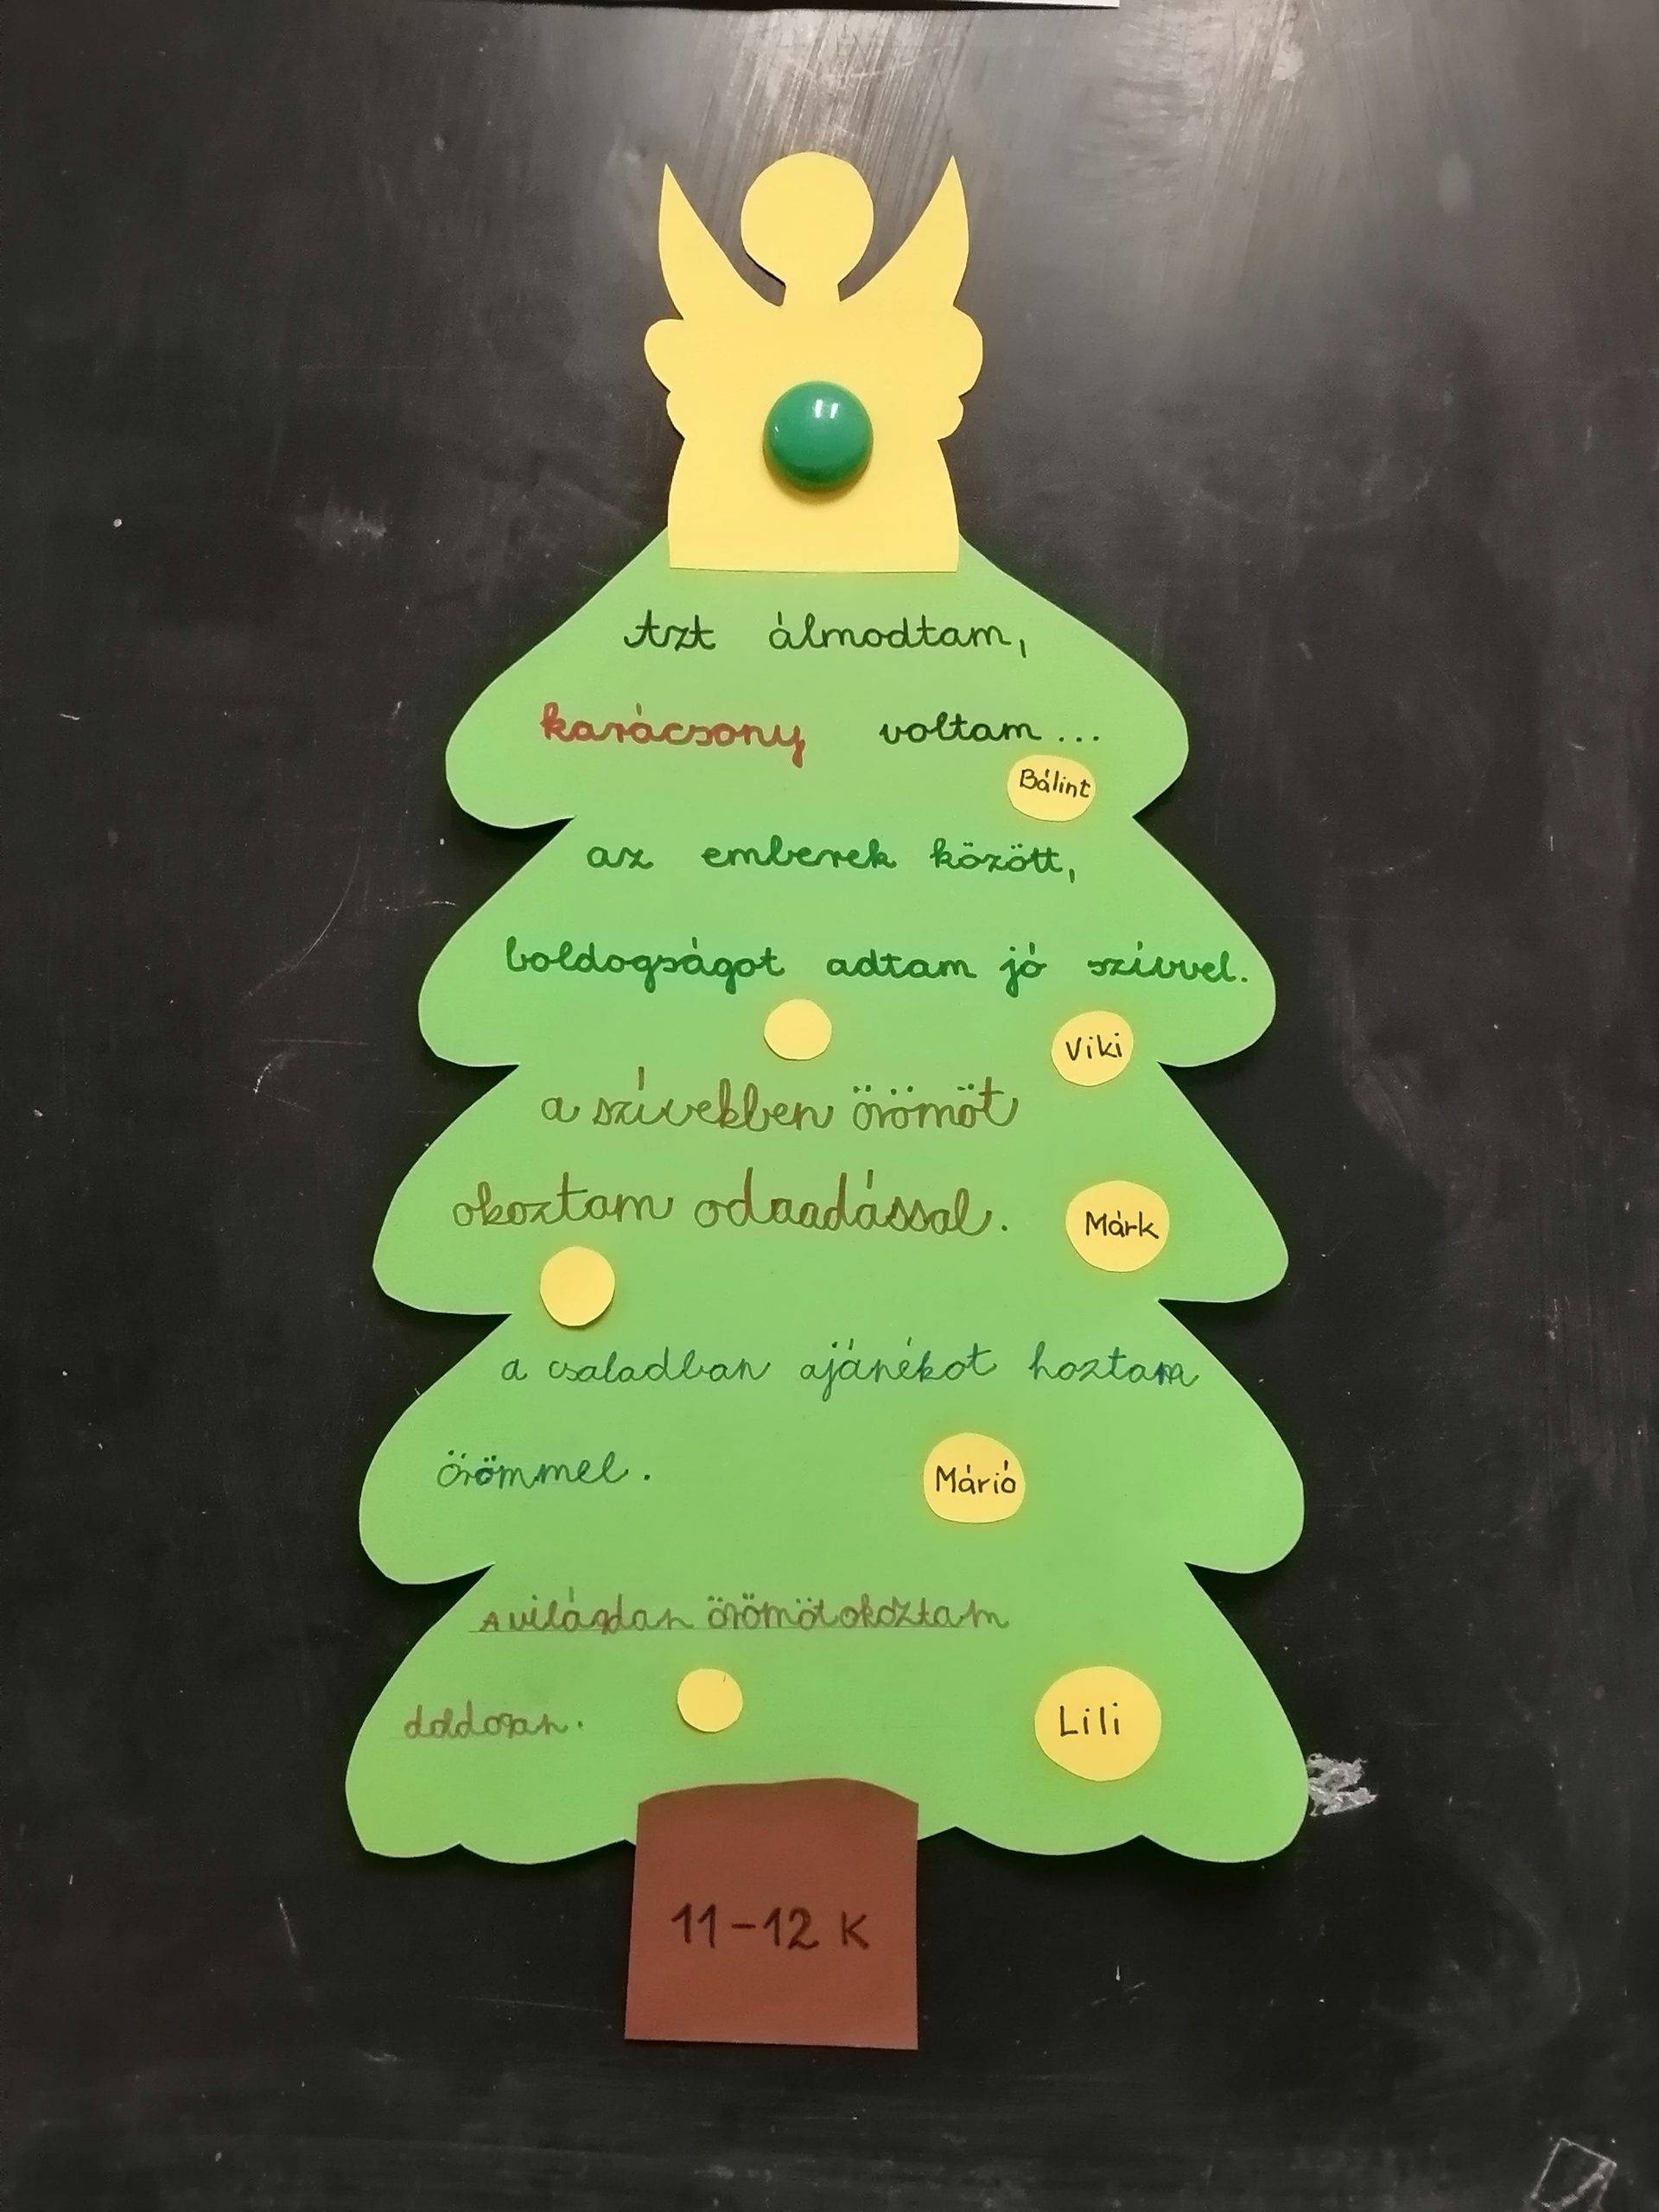 Azt álmodtam,
karácsony voltam...
Bálint
az emberek között,
boldogságot adtam jó szívvel.
Viki
a szívekben örömöt
okoztam odaadással.
Márk
a csaladban ajánékot hoztam
örömmel.
Márió
A világdan örömöt okoztam
Lili
11-12 K